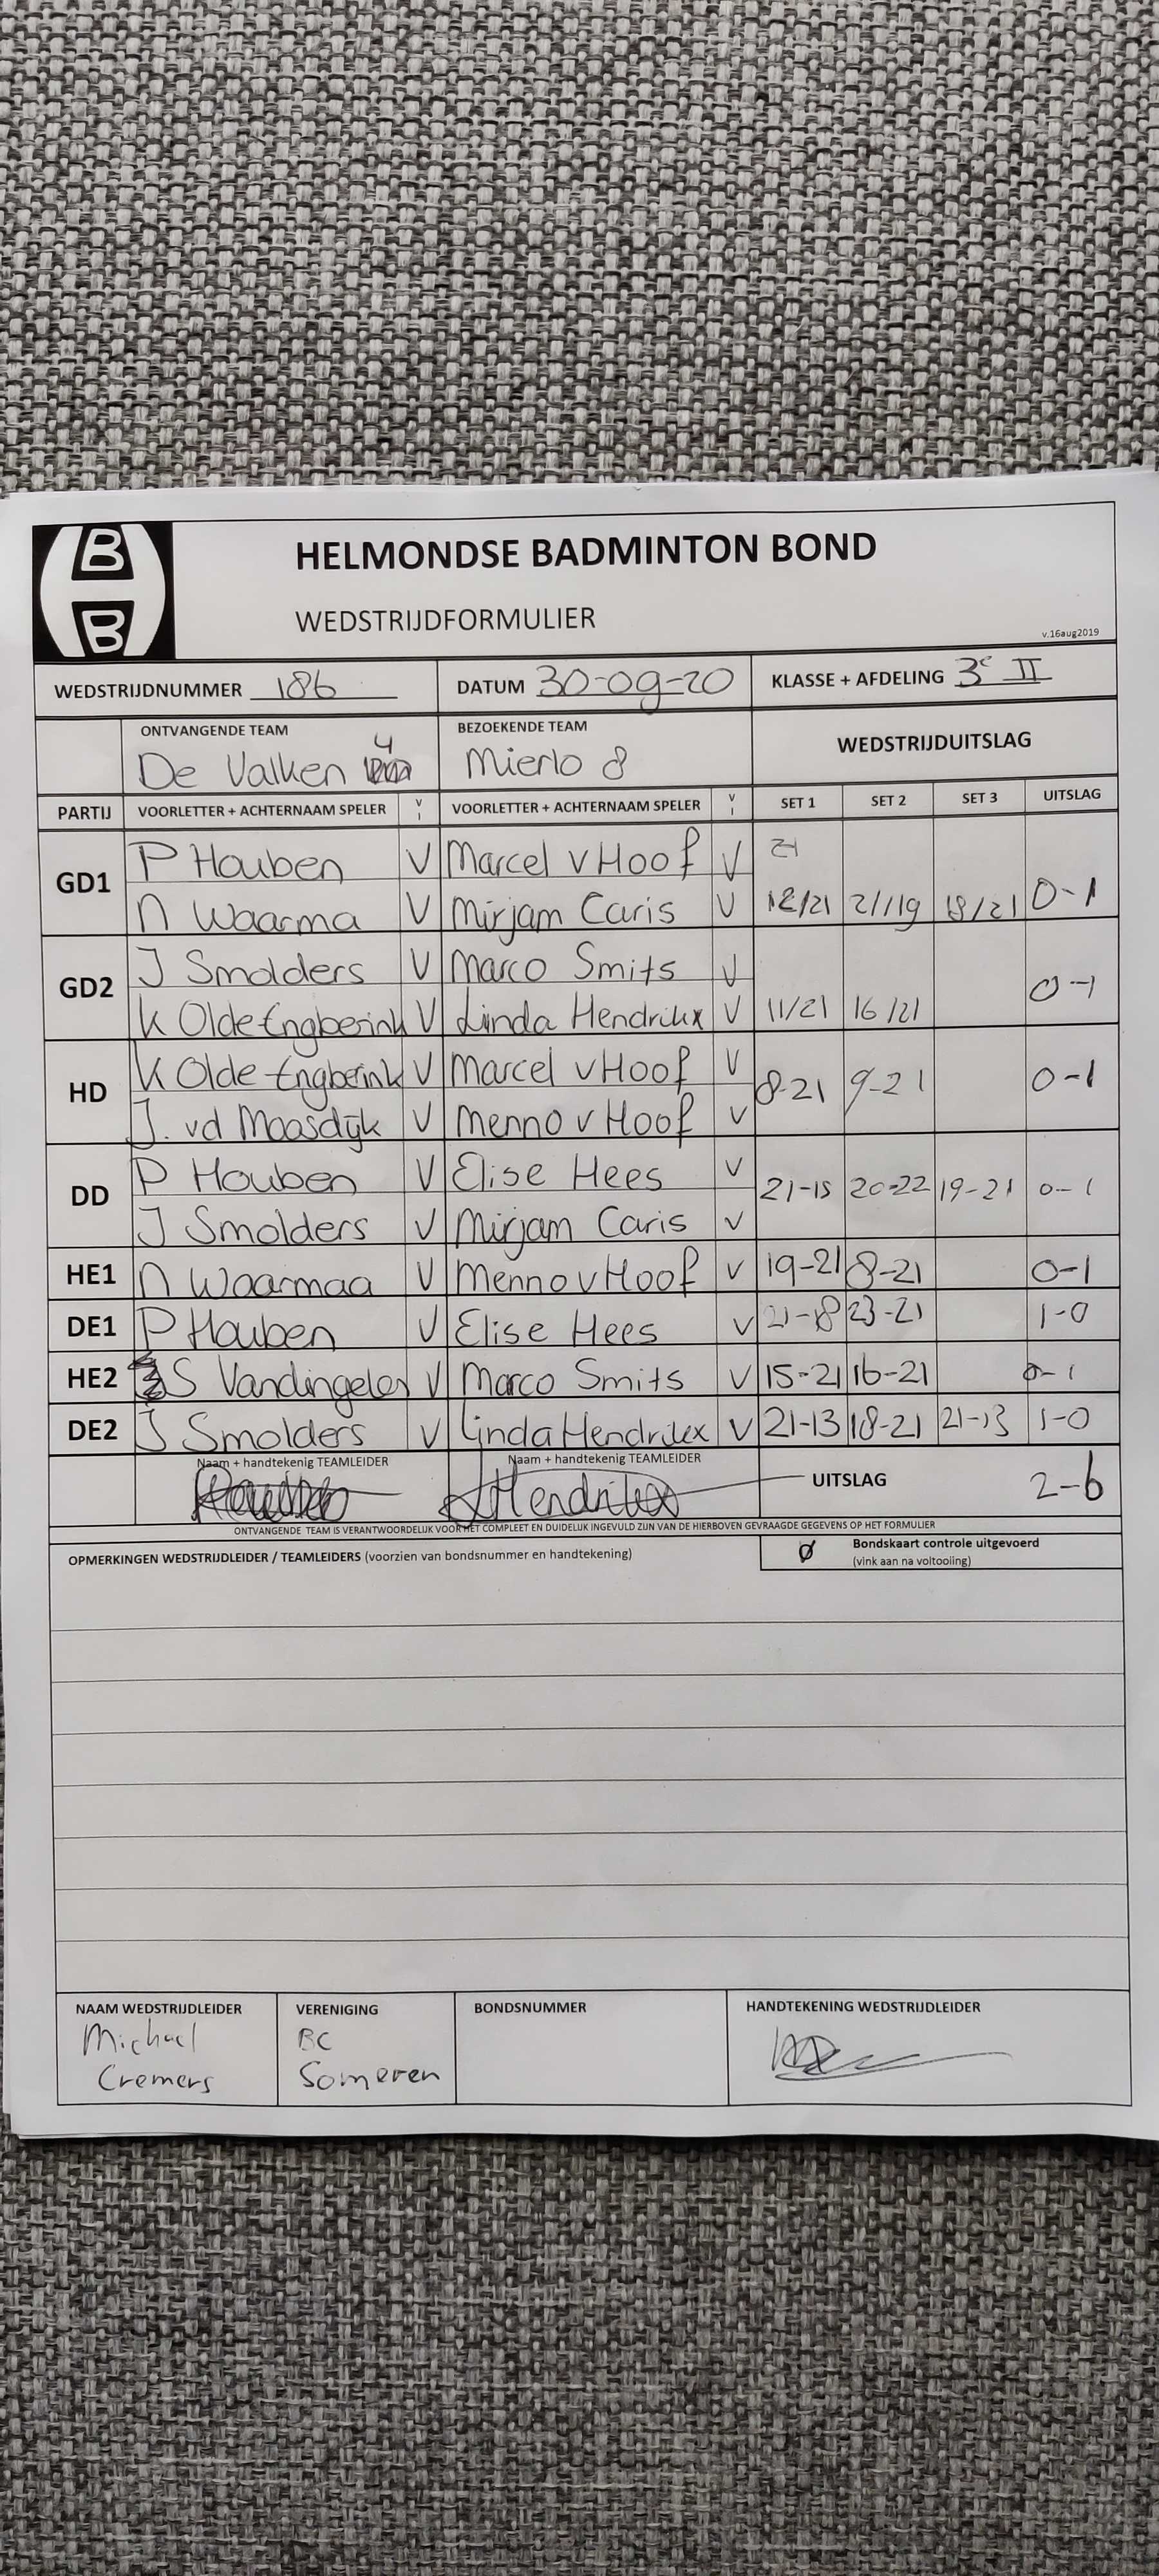 B
B
HELMONDSE BADMINTON BOND
WEDSTRIJDFORMULIER
v.16aug2019
WEDSTRIJDNUMMER 186 DATUM 30-09-20 KLASSE + AFDELING 3e II
ONTVANGENDE TEAM BEZOEKENDE TEAM WEDSTRIJDUITSLAG
De Valken 4 Mierlo 8
PARTIJ VOORLETTER + ACHTERNAAM SPELER V I VOORLETTER + ACHTERNAAM SPELER V I SET 1 SET 2 SET 3 UITSLAG
GD1 P Houben V Marcel v Hoof V 21
N Waarma V Mirjam Caris V 12/21 21/19 18/21 0-1
GD2 J Smolders V Marco Smits V
K Olde Engberink V Linda Hendrikx V 11/21 16/21 0-1
HD K Olde Engberink V Marcel v Hoof V 8-21 9-21 0-1
J. vd Maasdijk V Menno v Hoof V
DD P Houben V Elise Hees V 21-15 20-22 19-21 0-1
J Smolders V Mirjam Caris V
HE1 N Waarmaa V Menno v Hoof V 19-21 8-21 0-1
DE1 P Houben V Elise Hees V 21-18 23-21 1-0
HE2 S Vandingelen V Marco Smits V 15-21 16-21 0-1
DE2 J Smolders V Linda Hendrikx V 21-13 18-21 21-13 1-0
Naam + handtekenig TEAMLEIDER Naam + handtekenig TEAMLEIDER UITSLAG 2-6
LHendrikx
ONTVANGENDE TEAM IS VERANTWOORDELIJK VOOR HET COMPLEET EN DUIDELIJK INGEVULD ZIJN VAN DE HIERBOVEN GEVRAAGDE GEGEVENS OP HET FORMULIER
OPMERKINGEN WEDSTRIJDLEIDER / TEAMLEIDERS (voorzien van bondsnummer en handtekening)
Bondskaart controle uitgevoerd
(vink aan na voltooiing)
NAAM WEDSTRIJDLEIDER VERENIGING BONDSNUMMER HANDTEKENING WEDSTRIJDLEIDER
Michael BC
Cremers Someren